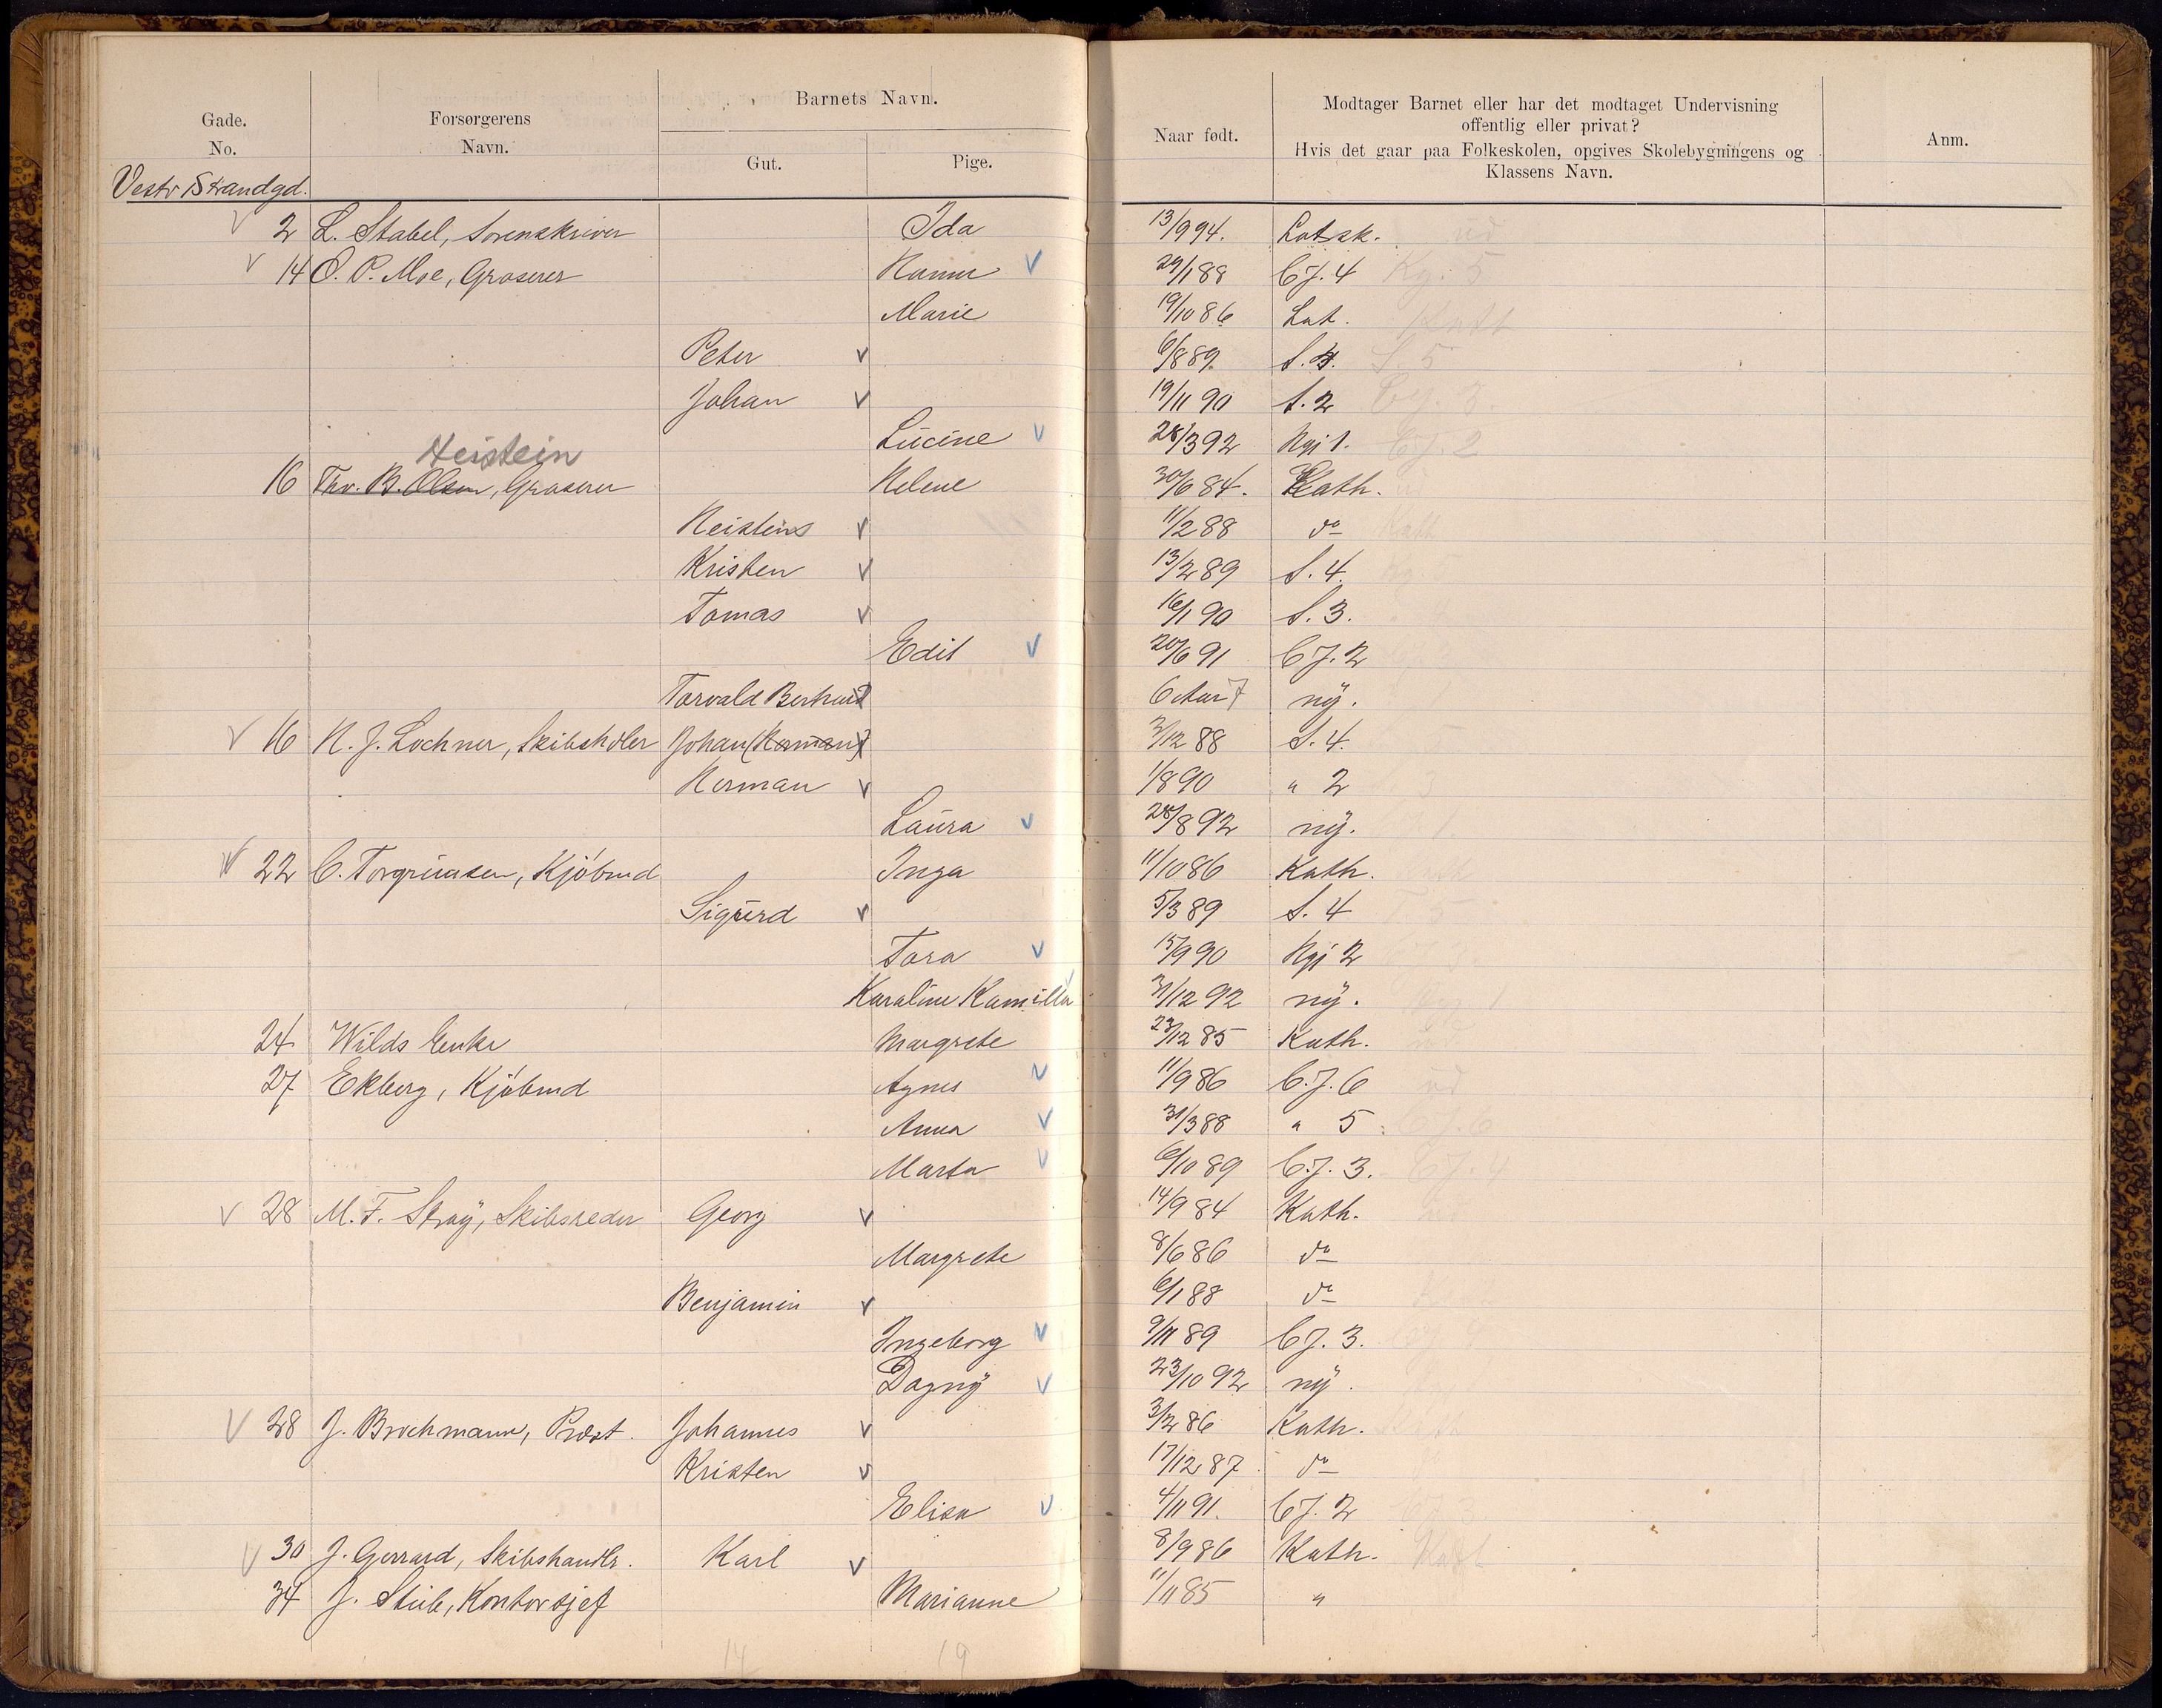 Gade.
No.
Forsørgerens
Navn.
Barnets Navn.
Gut.
Pige.
Naar født.
Modtager Barnet eller har det modtaget Undervisning
offentlig eller privat?
Hvis det gaar paa Folkeskolen, opgives Skolebygningens og
Klassens Navn.
Anm.
Vestr Strandgd.
2 L. Stabel, Sorenskriver Ida 13/9 94. Latsk. ud
14 O. P. Moe, Groserer Hanna 29/1 88 CJ. 4 Kg. 5
Marie 19/10 86 Lat.
Peter 6/8 89 S. 4. S. 5
Johan 19/11 90 S. 2
Lucine 28/3 92 Ngj 1. CJ. 2
Heistein
16 Thv. B. Olsen, Groserer Helene 30/6 84. Kath.
Heisteins 11/2 88 do Kath
Kristen 13/2 89 S. 4.
Tomas 16/1 90 S. 3.
Edit 20/6 91 CJ. 2
Torvald Bernhard 6 Aar 7 ny.
16 N. J. Lochner, Skibshdler Johan (Herman) 3/12 88 S. 4.
Herman 1/8 90 " 2
Laura 28/8 92 ny.
22 C. Torgrimsen, Kjøbmd Inga 11/10 86 Kath.
Sigurd 5/3 89 S. 4
Tora 15/9 90 Ngj 2
Karaline Kamilla 31/12 92 ny.
24 Wilds Enke Margrete 23/12 85 Kath.
27 Ekberg, Kjøbmd Agnes 11/9 86 C.J. 6 ud
Anna 31/3 88 " 5 CJ. 6
Marta 6/10 89 C.J. 3. CJ. 4
28 M. F. Stray, Skibsreder Georg 14/9 84 Kath.
Margrete 8/6 86 do
Benjamin 6/1 88 do
Ingeborg 9/11 89 CJ. 3.
Dagny 23/10 92 ny.
28 J. Brochmann, Prost. Johannes 3/2 86 Kath.
Kristen 17/12 87 do
Elisa 4/11 91. CJ. 2
30 J. Gerrard, Skibshandlr. Karl 8/9 86 Kath. Kath
34 J. Stub, Kontorsjef Marianne 11/11 85 "
14 19